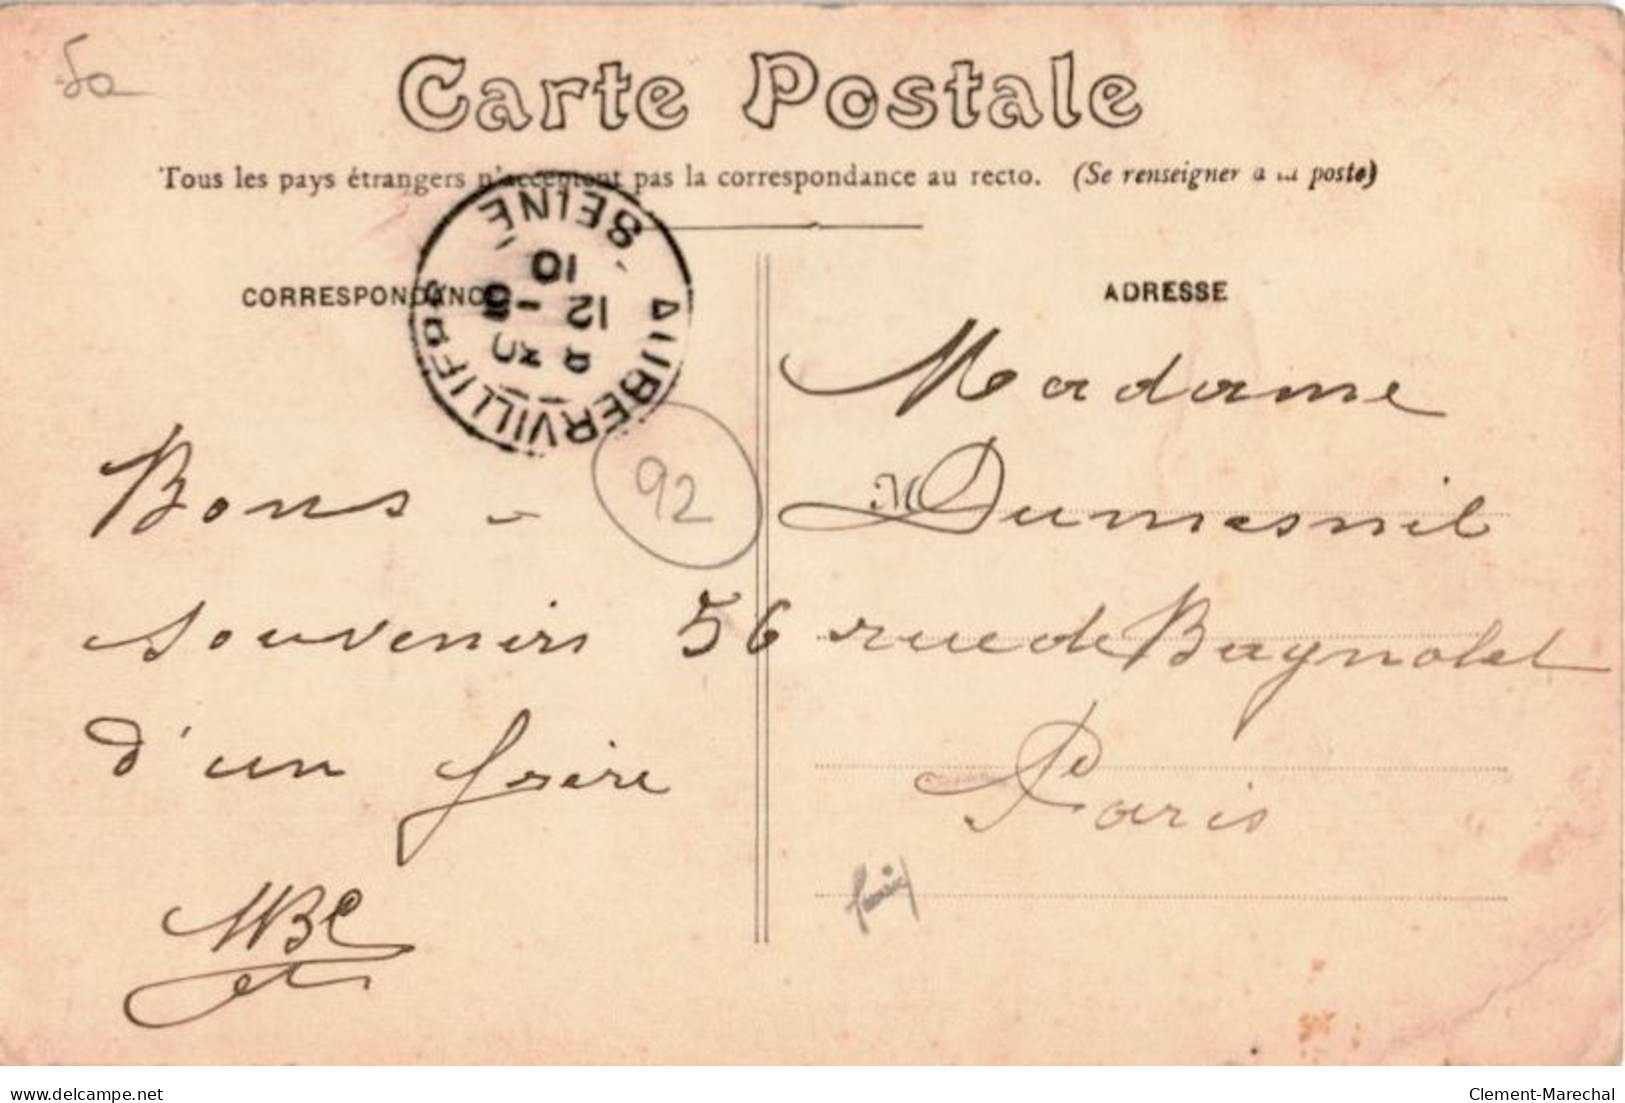 50
Carte Postale
Tous les pays étrangers n'acceptent pas la correspondance au recto. (Se renseigner à la poste)
CORRESPONDANCE
ADRESSE
AUBERVILLIERS
SEINE
8 30
12 -5
10
92
Bons -
souvenirs
d'un frère
MBC
et
Madame
M Dumesnil
56 rue de Bagnolet
Paris
delcampe.net
Clement-Marechal